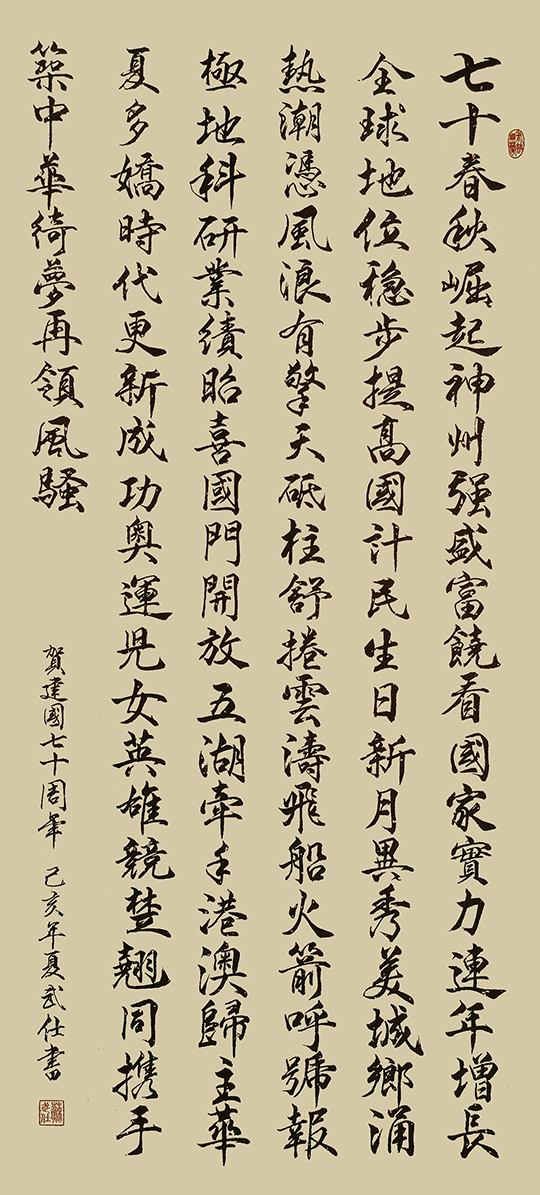 七十春秋崛起神州强盛富饒看國家實力連年增長
全球地位穩步提高國計民生日新月異秀美城鄉涌
熱潮憑風浪有擎天砥柱舒捲雲濤飛船火箭呼號報
極地科研業績昭喜國門開放五湖牽手港澳歸主華
夏多嬌時代更新成功奧運兒女英雄競楚翹同携手
築中華綺夢再領風騷
賀建國七十周年 己亥年夏武仕書